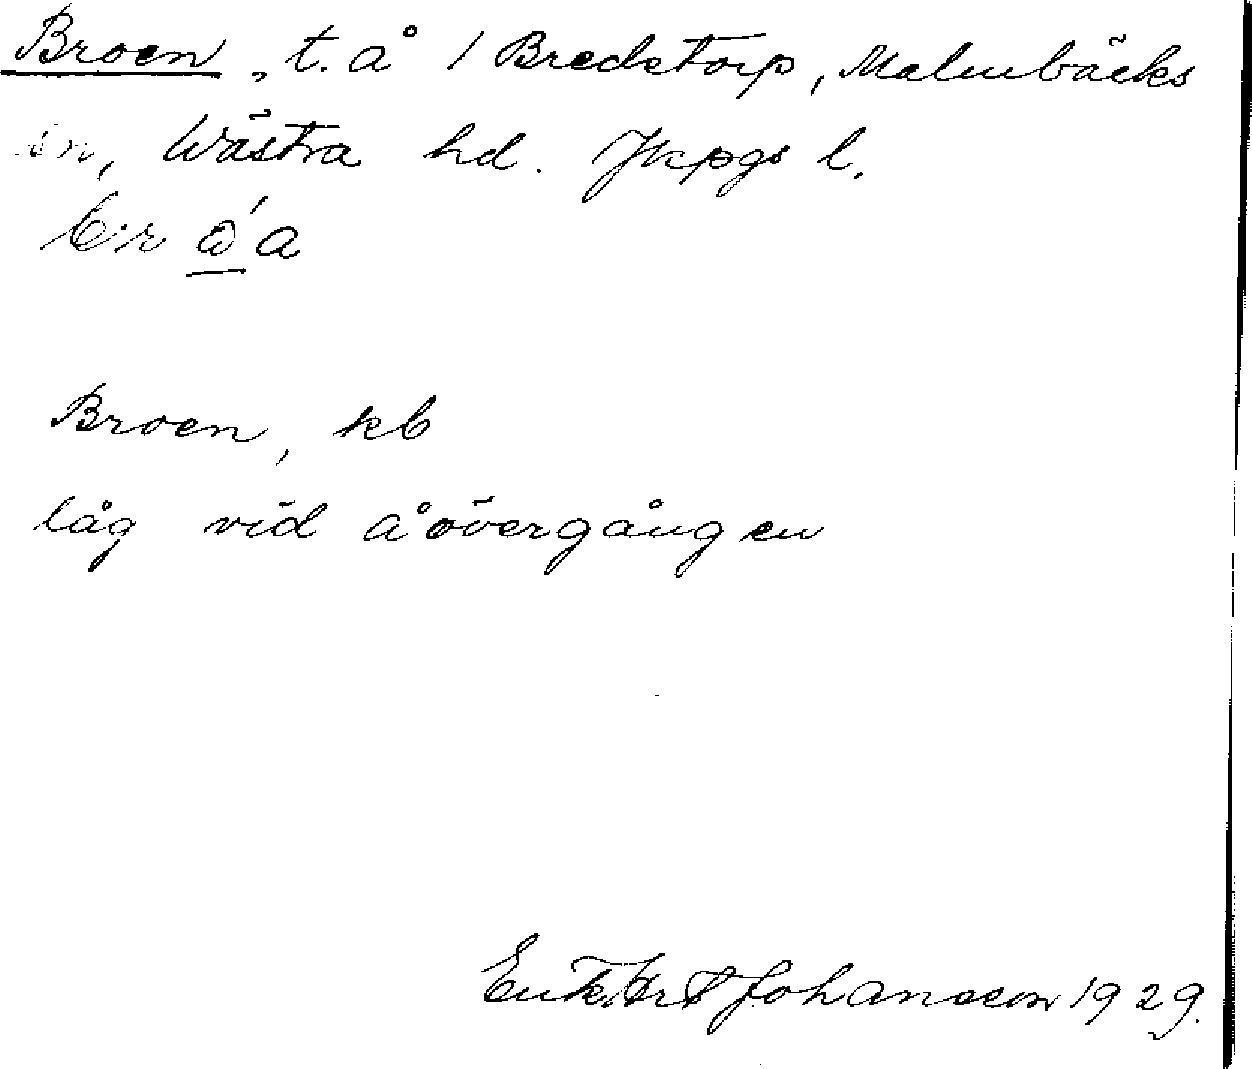 Broen, t. å / Bredstorp, Malmbäcks
sn, Västra hd. Jkpgs l.
Broen, kb
låg vid åövergången
Johansson 1929.